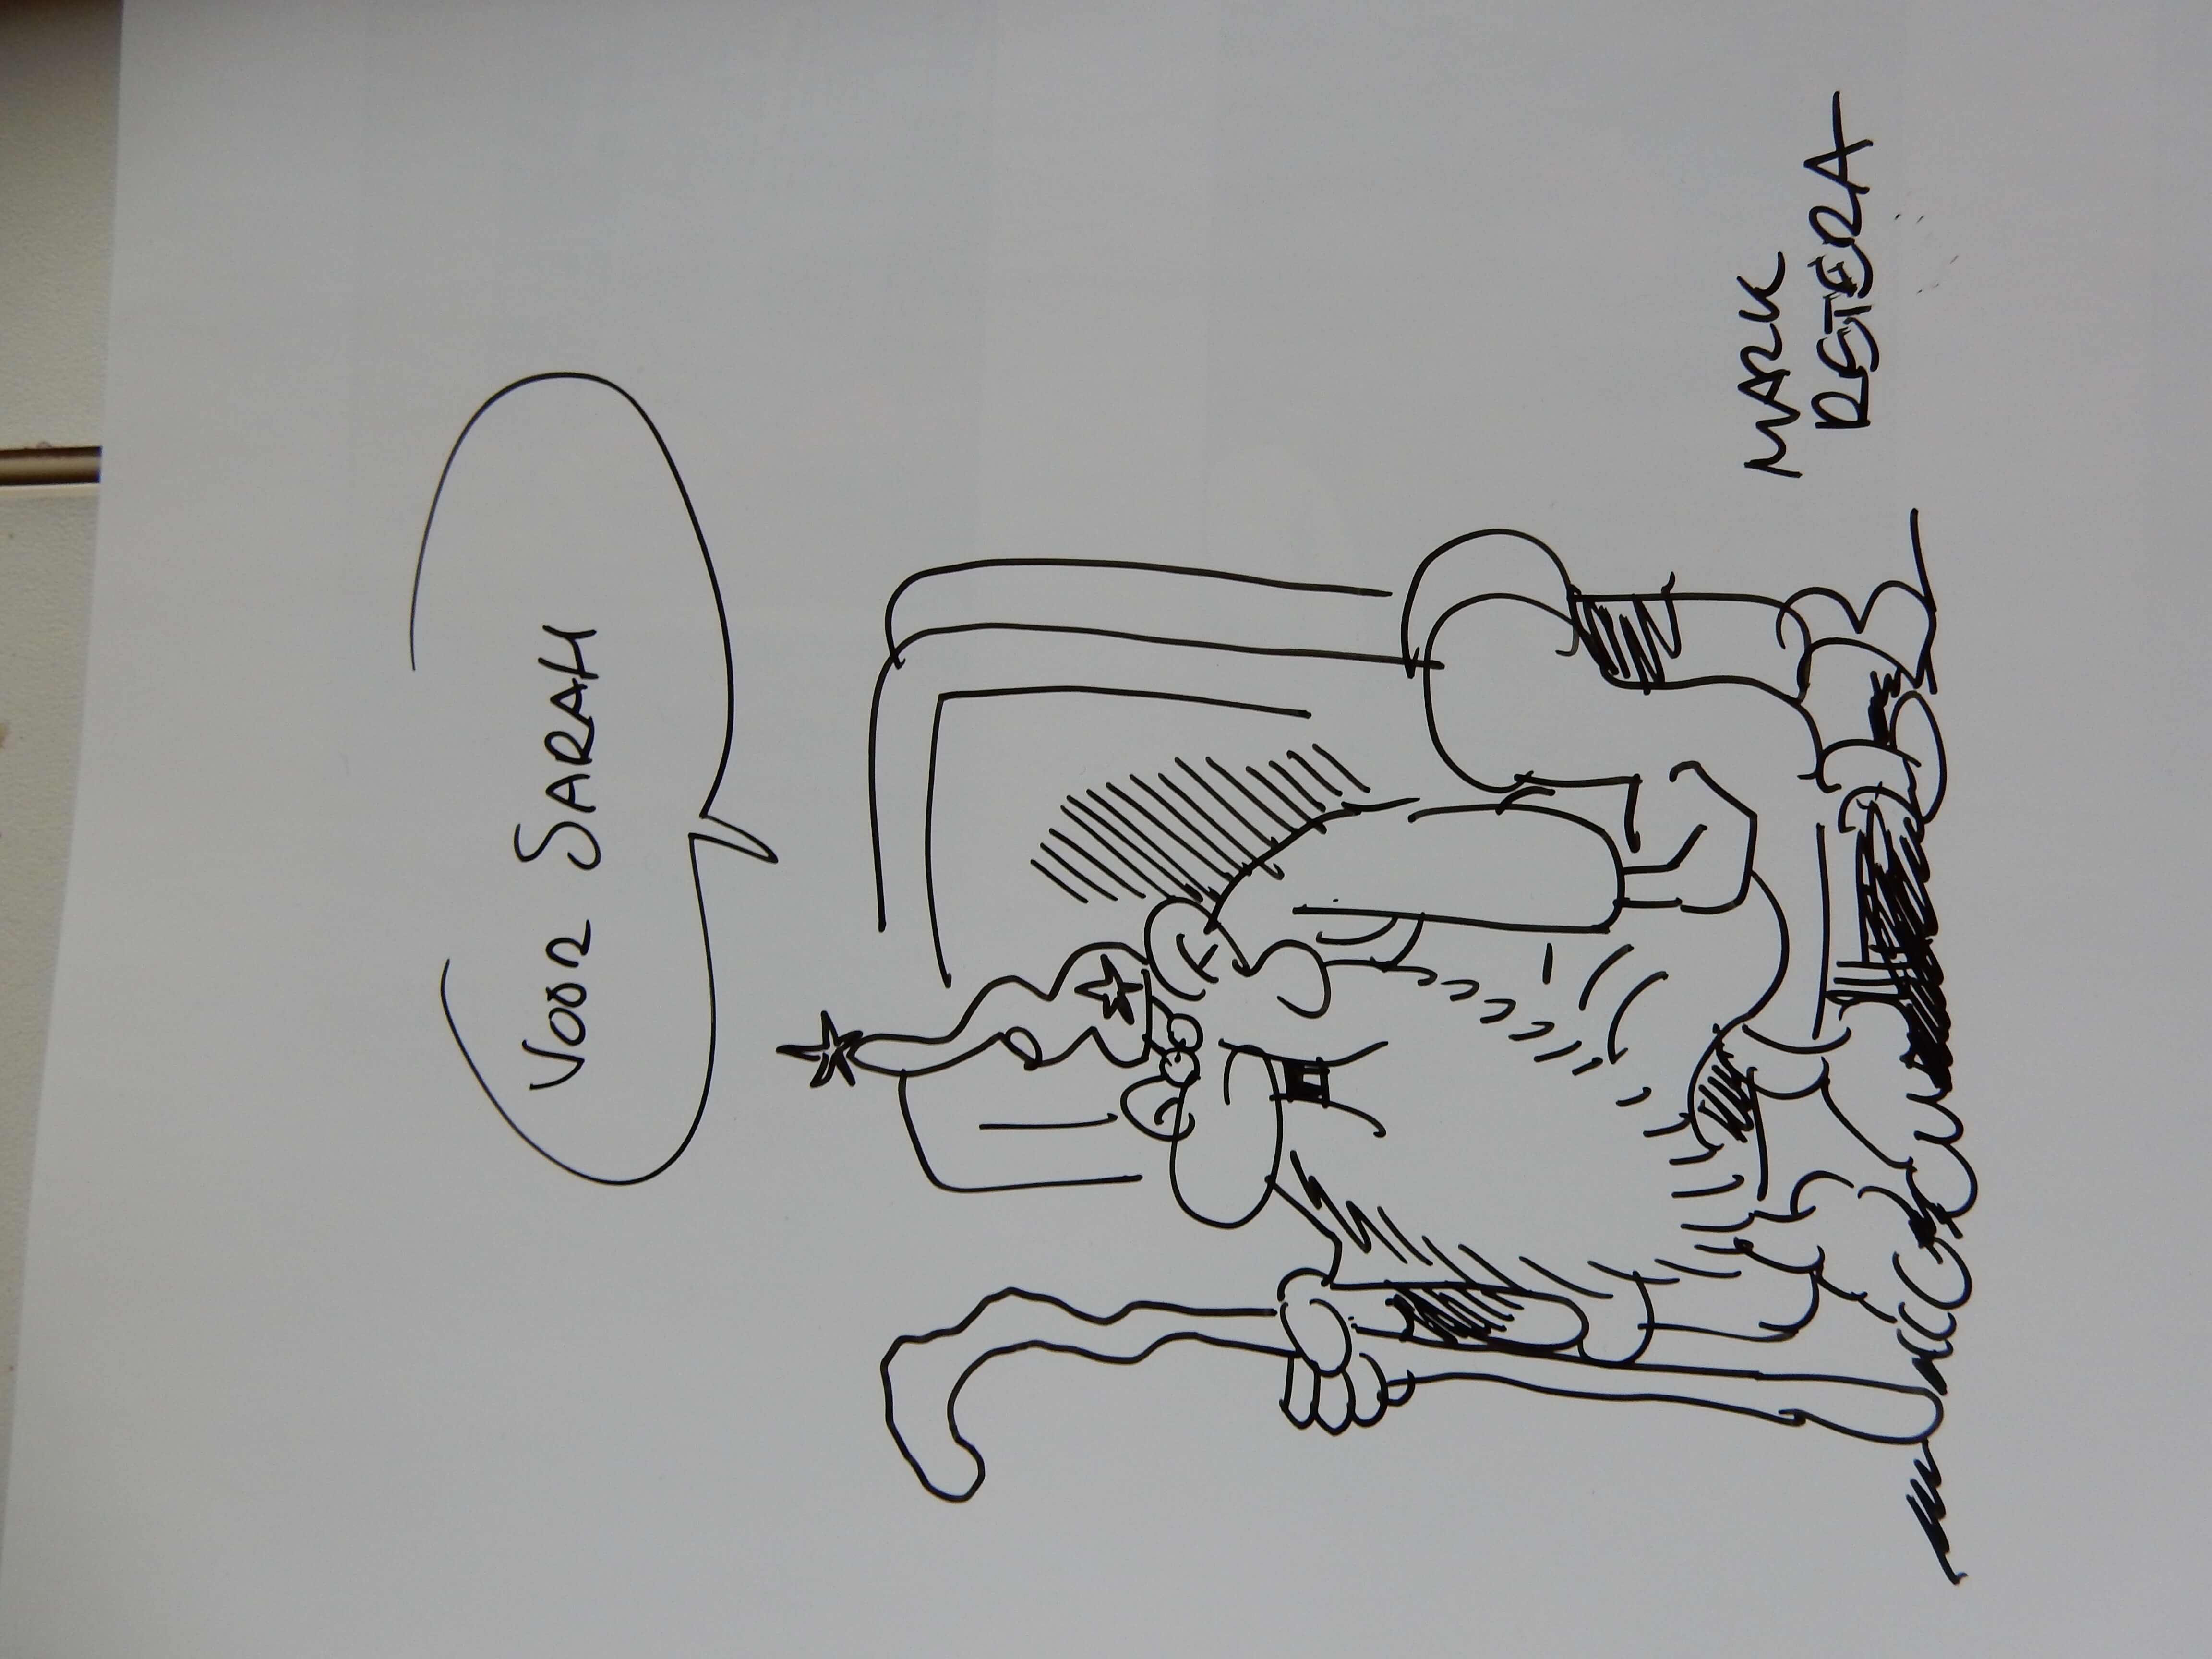 VOOR SARAH
MARK
RETERA